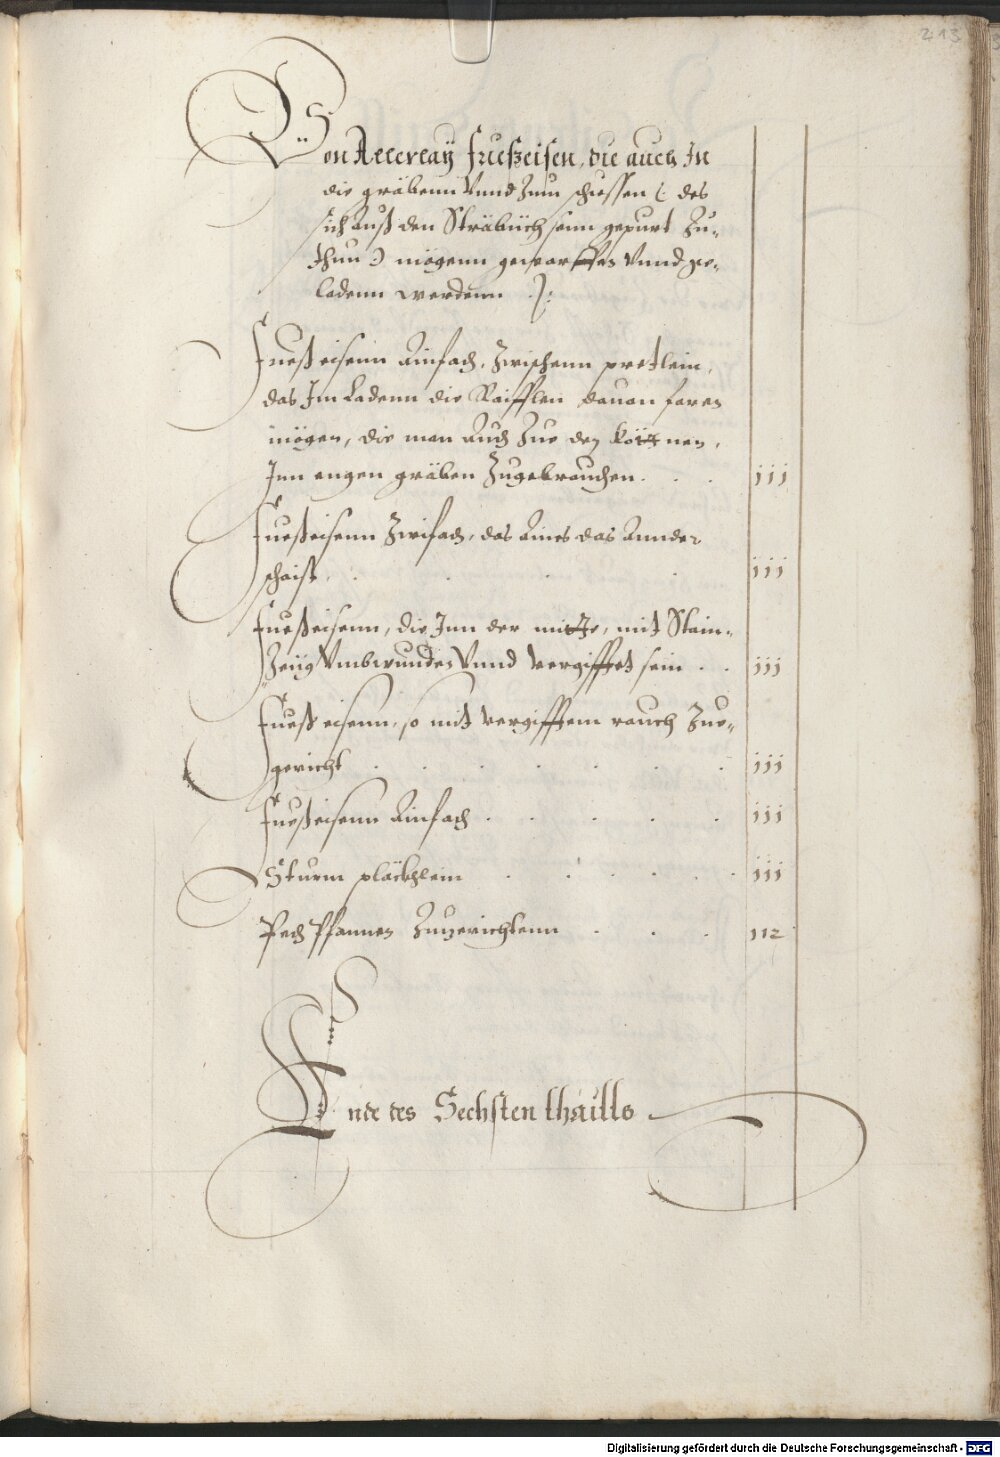 213
Von Allerlaÿ fueßeisen, die auch In
die gräbenn Vnnd Zum schiessen (: des
sich auß den Sträbüchsenn gepurt Zu-
thun :) mögenn geworffen Vnnd ge-
ladenn werdenn
Fueßeisenn Ainfach, Zwischenn pretlein,
das Im Ladenn die Raifflen dauon faren
mögen, die man Auch Zue den Köttnen,
Inn engen gräben Zugebrauchen . . . iij
Fueßeisenn Zwifach, das Aines das Annder
schaist . . . . iij
Fueßeisenn, die Inn der mitte, mit Stain-
Zeug Vmbwunden Vnnd vergifftet sein . . iij
Fueßeisenn, so mit vergifftem rauch Zue-
gericht . . . . . . . iij
Fueßeisenn Ainfach . . . . . iij
Sturm pläckhlein . . . . . iij
Pech Pfannen Zuzerichtenn . . .
Ende des Sechsten thaills
Digitalisierung gefördert durch die Deutsche Forschungsgemeinschaft - DFG